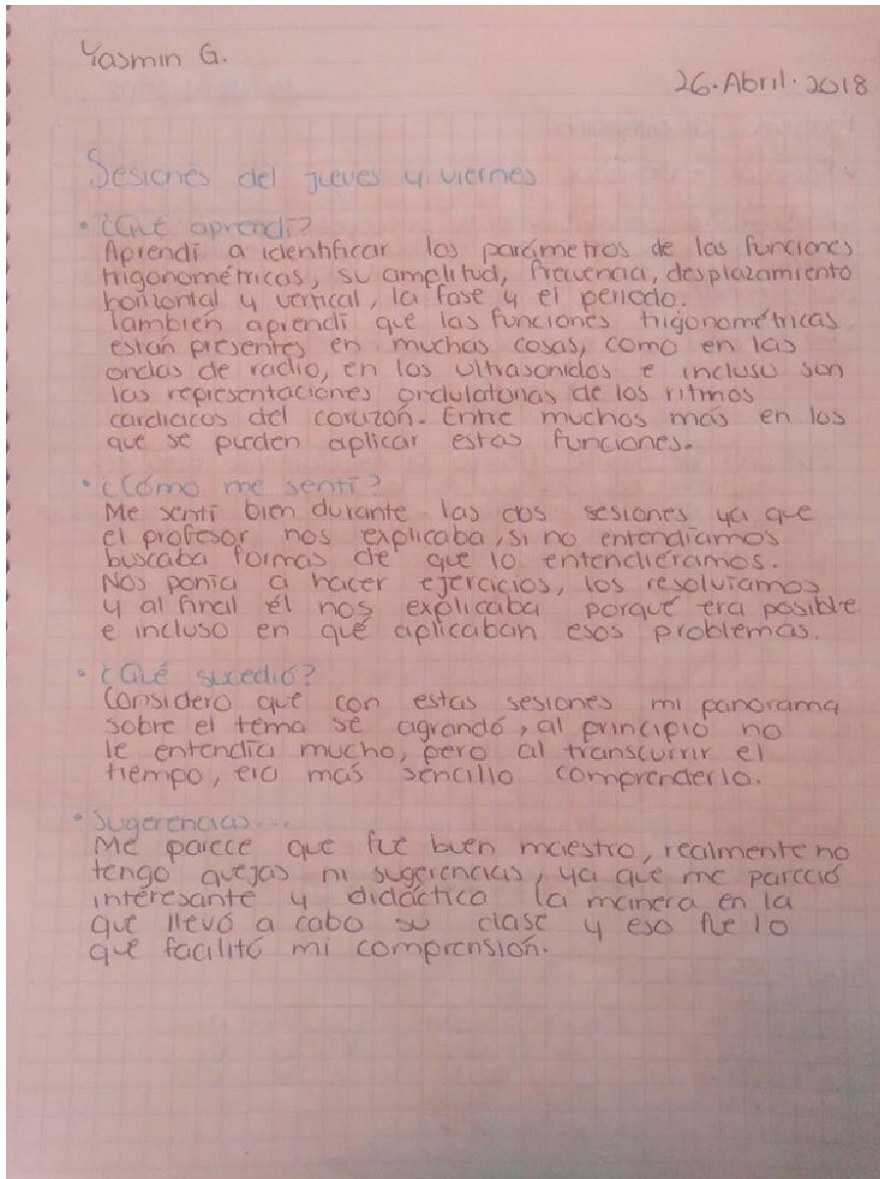 Yasmin G.
26·Abril·2018
Sesiones del jueves y viernes
• ¿Qué aprendí?
Aprendí a identificar los parámetros de las funciones
trigonométricas, su amplitud, frecuencia, desplazamiento
horizontal y vertical, la fase y el periodo.
También aprendí que las funciones trigonométricas
están presentes en muchas cosas, como en las
ondas de radio, en los ultrasonidos e incluso son
las representaciones ondulatorias de los ritmos
cardiacos del corazón. Entre muchos más en los
que se pueden aplicar estas funciones.
• ¿Cómo me sentí?
Me sentí bien durante las dos sesiones ya que
el profesor nos explicaba, si no entendíamos
buscaba formas de que lo entendiéramos.
Nos ponía a hacer ejercicios, los resolvíamos
y al final él nos explicaba porqué era posible
e incluso en qué aplicaban esos problemas.
• ¿Qué sucedió?
Considero que con estas sesiones mi panorama
sobre el tema se agrandó, al principio no
le entendía mucho, pero al transcurrir el
tiempo, era más sencillo comprenderlo.
• Sugerencias...
Me parece que fue buen maestro, realmente no
tengo quejas ni sugerencias, ya que me pareció
interesante y didáctica la manera en la
que llevó a cabo su clase y eso fue lo
que facilitó mi comprensión.